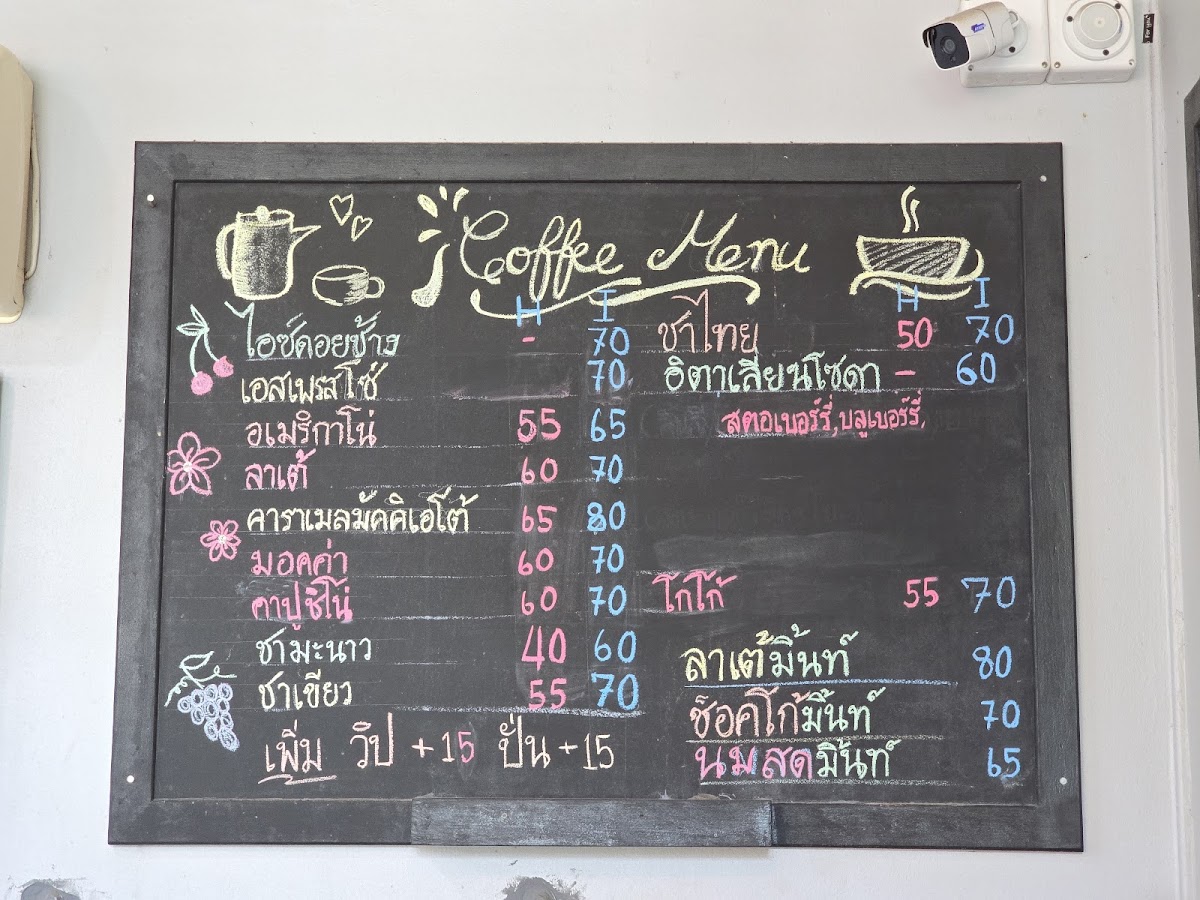 Coffee Menu
H I
ไอซ์ดอยช้าง - 70
เอสเพรสโซ่ 70
อเมริกาโน่ 55 65
ลาเต้ 60 70
คาราเมลมัคคิเอโต้ 65 80
มอคค่า 60 70
คาปูชิโน่ 60 70
ชามะนาว 40 60
ชาเขียว 55 70
เพิ่ม วิป +15 ปั่น +15
H I
ชาไทย 50 70
อิตาเลียนโซดา - 60
สตอเบอร์รี่, บลูเบอร์รี่,
โกโก้ 55 70
ลาเต้มิ้นท์ 80
ช็อคโก้มิ้นท์ 70
นมสดมิ้นท์ 65